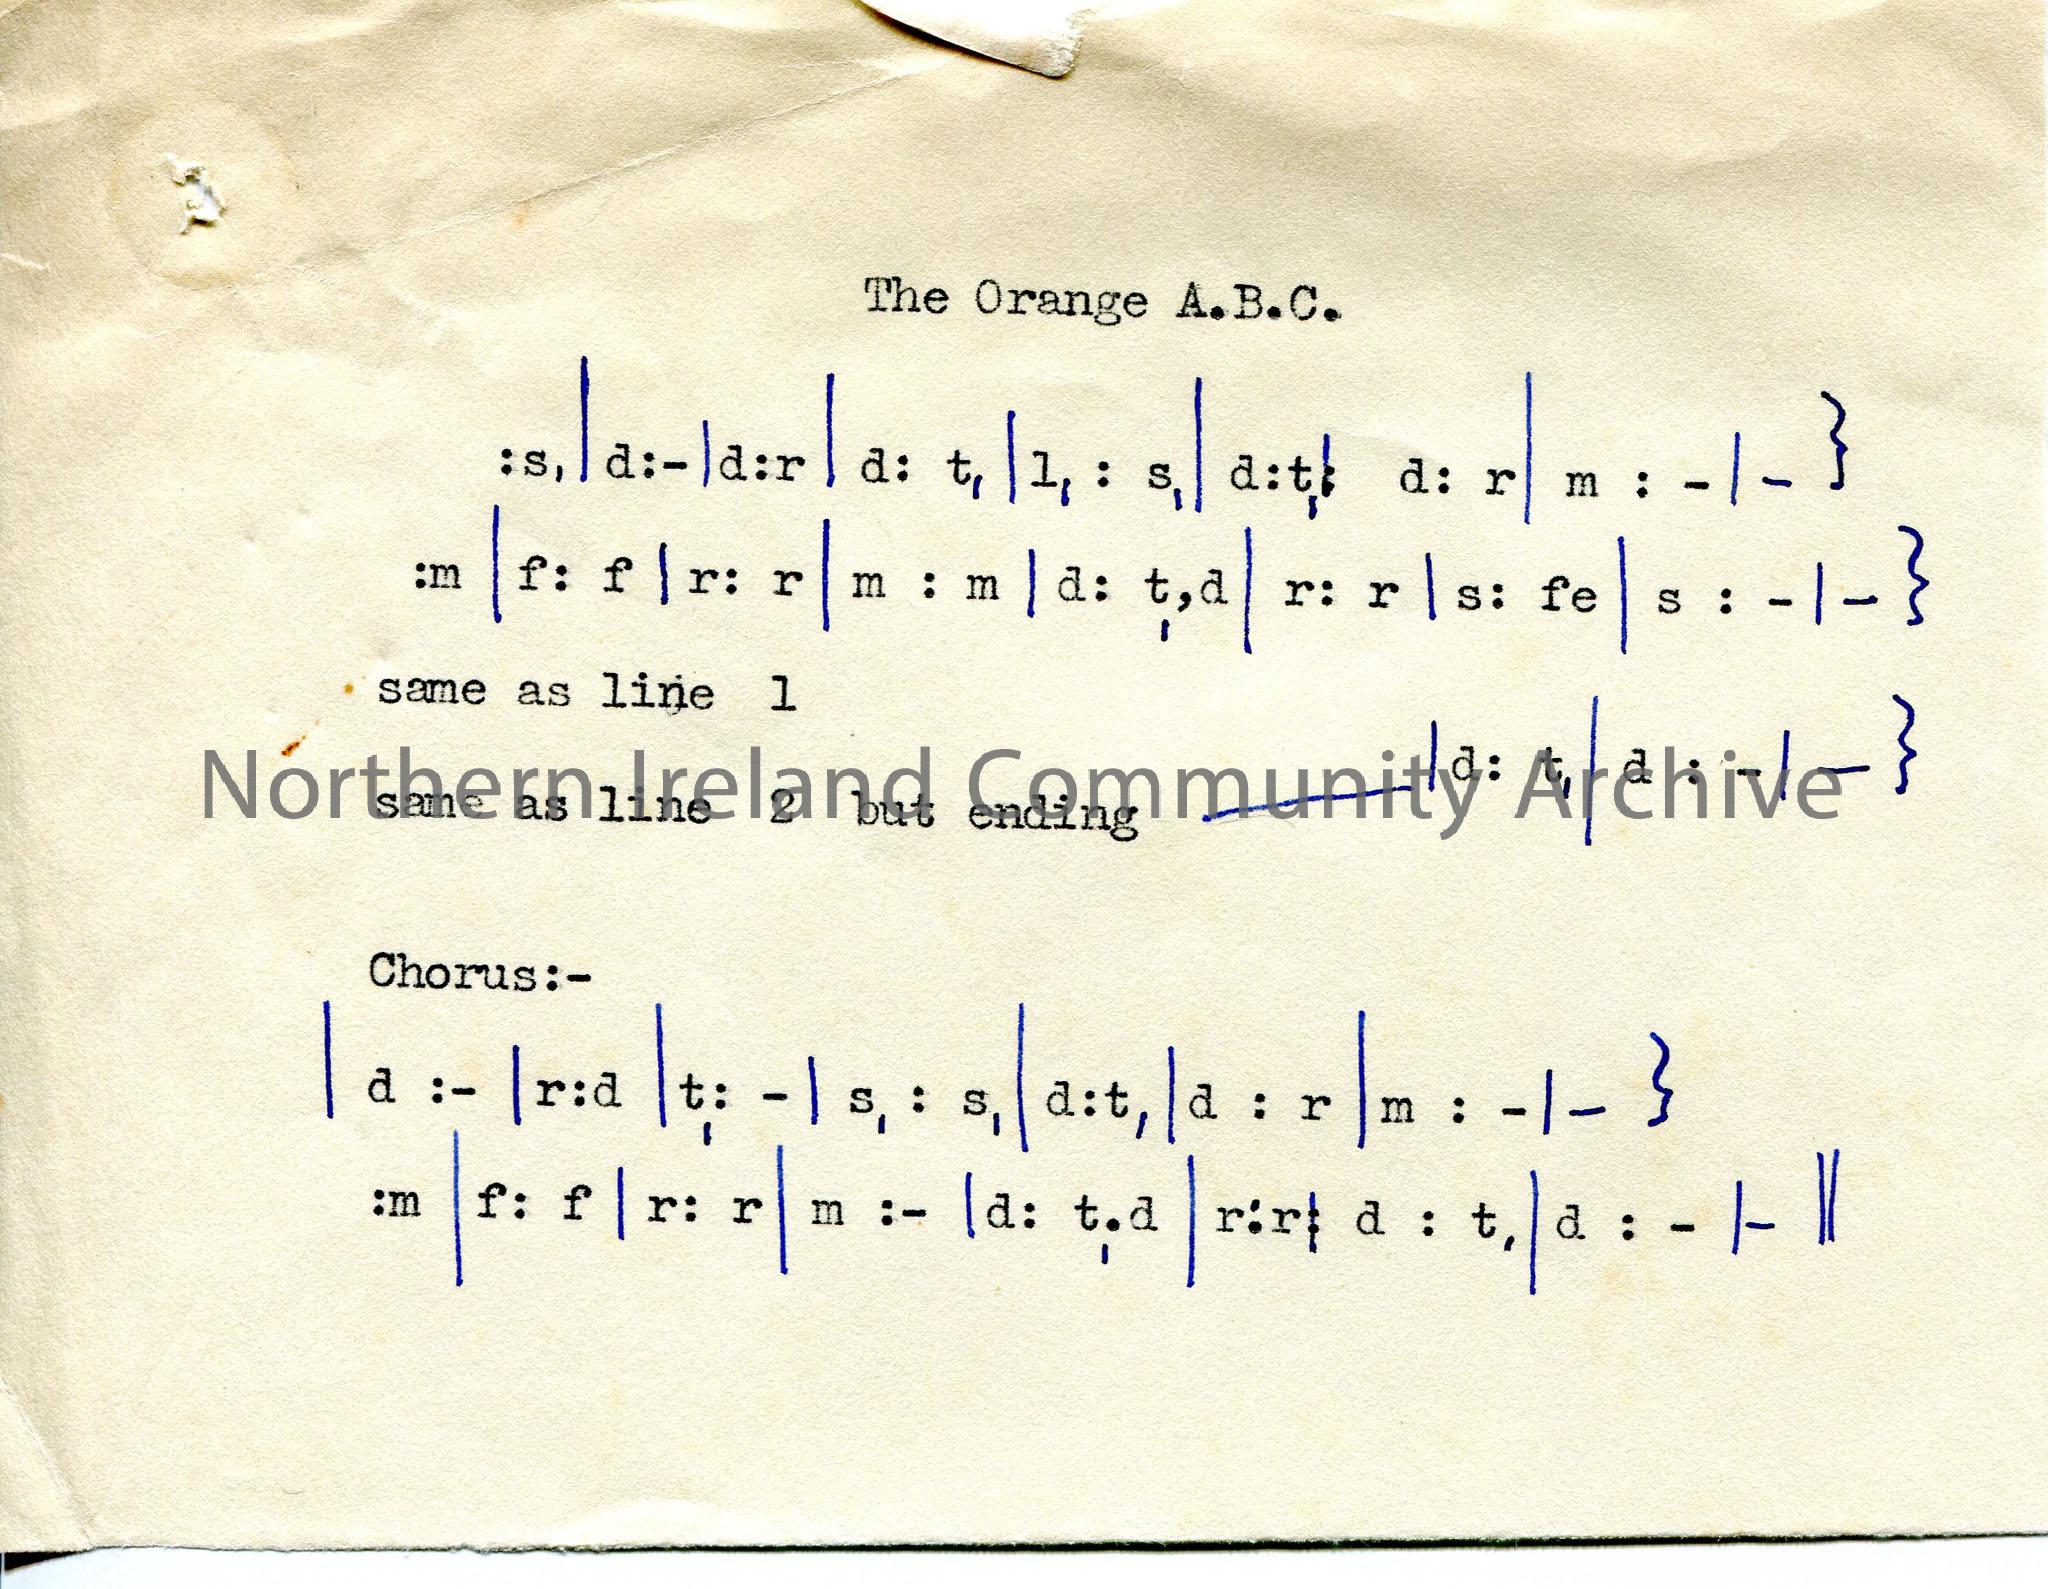 The Orange A.B.C.
:s, | d:- | d:r | d: t, | l, : s, | d:t, | d: r | m : - | - }
:m | f: f | r: r | m : m | d: t,,d | r: r | s: fe | s : - | - }
same as line 1
same as line 2 but ending — | d: t, | d : - | - }
Northern Ireland Community Archive
Chorus:-
| d :- | r:d | t,: - | s, : s, | d:t, | d : r | m : - | - }
:m | f: f | r: r | m :- | d: t,.d | r:r | d : t, | d : - | - ||